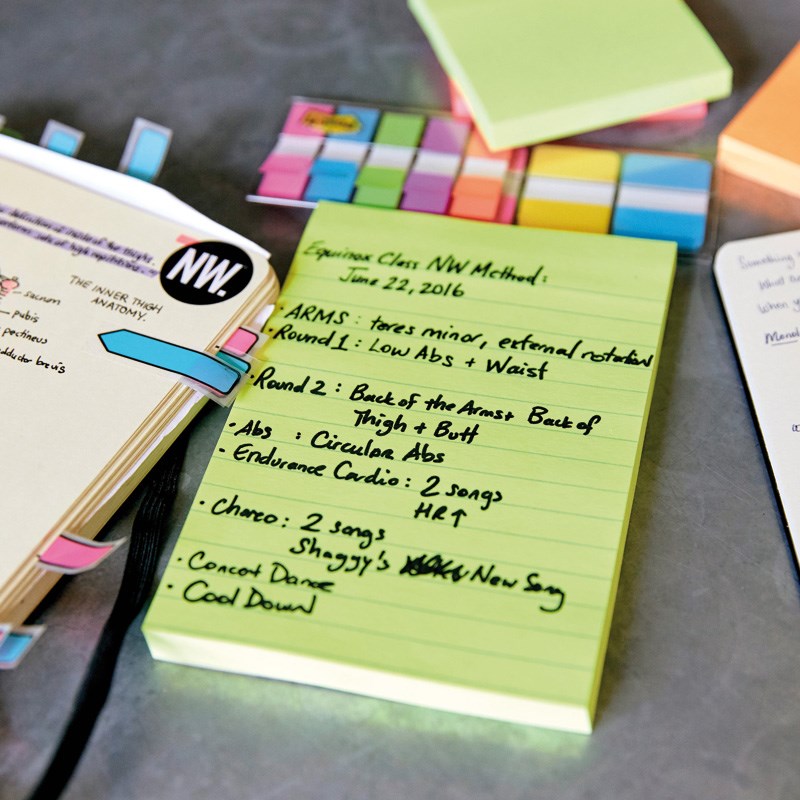 NW.
THE INNER THIGH
ANATOMY.
sacrum
pubis
pectineus
adductor brevis
Equinox Class NW Method:
June 22, 2016
· ARMS : teres minor, external rotation
· Round 1 : Low Abs + Waist
· Round 2 : Back of the Arms + Back of
Thigh + Butt
· Abs : Circular Abs
· Endurance Cardio : 2 songs
HR ↑
· Choreo : 2 songs
Shaggy's New Song
· Concert Dance
· Cool Down
Something
What
When